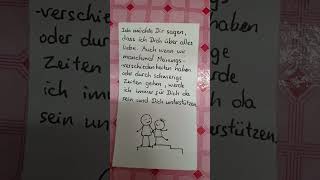 -verschiedenheiten haben
oder durch schwierige
Zeiten gehen, werde
ich immer für Dich da
sein und Dich unterstützen
Ich möchte Dir sagen,
dass ich Dich über alles
liebe. Auch wenn wir
manchmal Meinungs-
-verschiedenheiten haben
oder durch schwierige
Zeiten gehen, werde
ich immer für Dich da
sein und Dich unterstützen